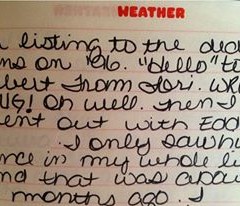 WEATHER
listing to the
ms on '96. "Hello" to
bert from Lori.
UG! Oh well. Then I
ent out with Edd
I only saw
nce in my whole
nd that was abou
months ago. I